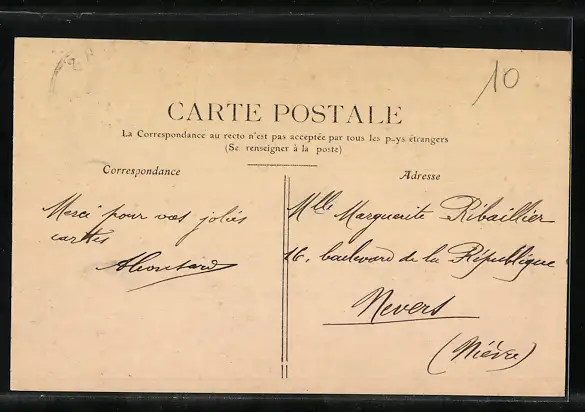 10
CARTE POSTALE
La Correspondance au recto n'est pas acceptée par tous les pays étrangers
(Se renseigner à la poste)
Correspondance
Adresse
Merci pour vos jolies
cartes
Mlle Marguerite Ribaillier
16, boulevard de la République
Nevers
(Nièvre)